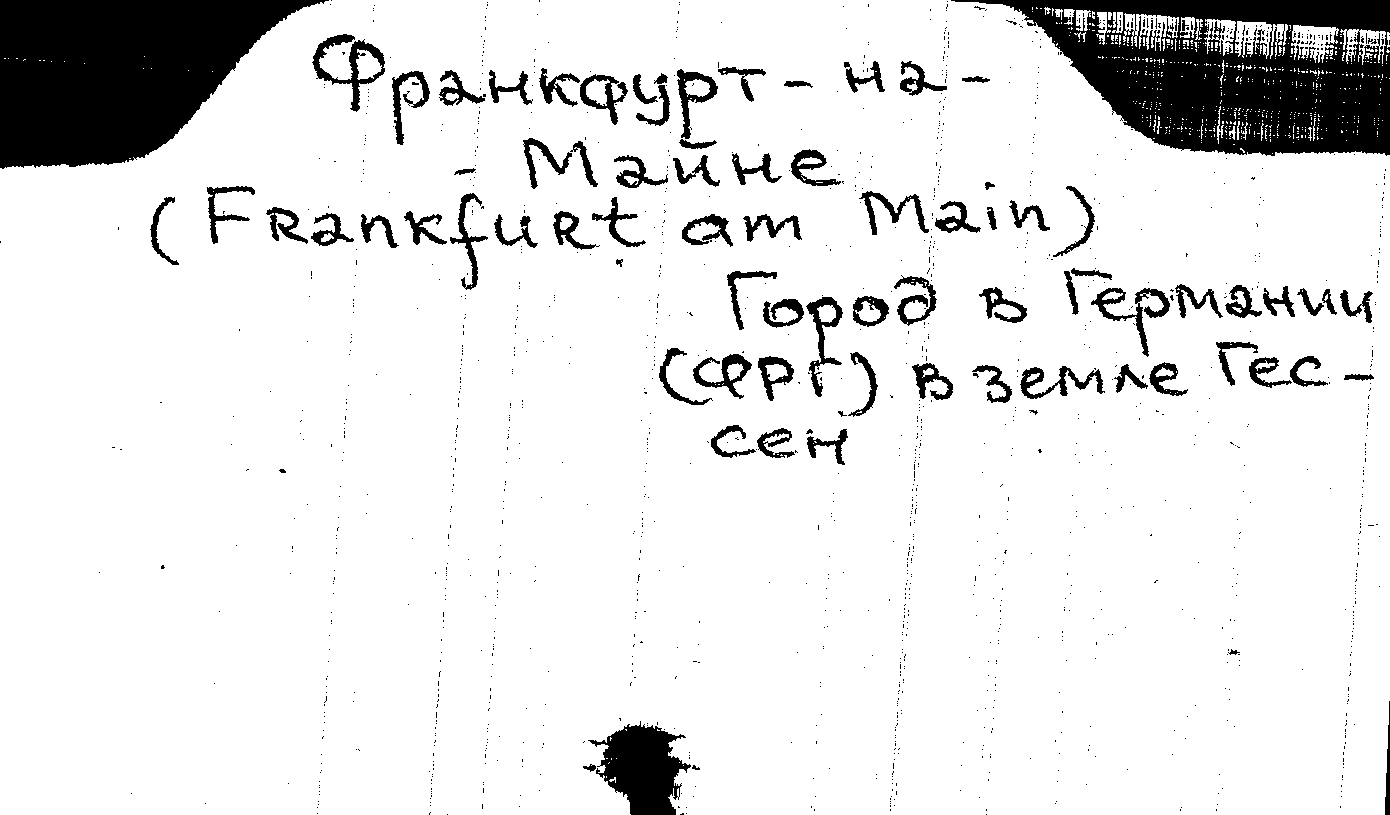 Франкфурт-на-
- Майне
(Frankfurt am Main)
Город в Германии
(ФРГ) в земле Гес-
сен